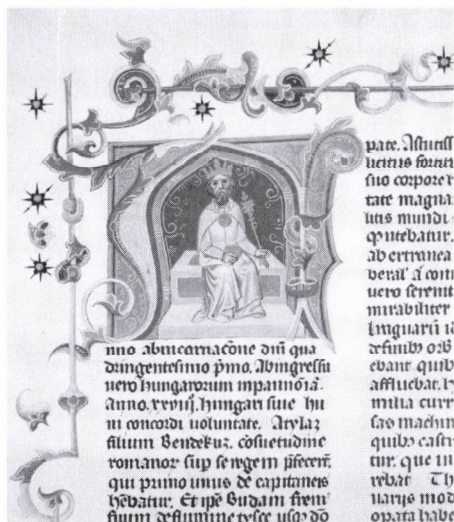 nno abincarnacōne dn̄i qua
dringentesimo p̄mo. Abingressu
uero hungarorum inpannōiā.
Anno. xxviij. hungari siue hu
ni concordi uoluntate. Atylaz
filium Bendekuz. cōsuetudine
romanor sup se regem p̄fecert.
qui primo unus de capitaneis
hēbatur. Et ip̄e Budam frem
suum de flumine tysce usq; dō
pate. Astutiss
suo corpore
tate magna
utis mundi
q̄ nitebatur.
ab extranea
uero serenit
mirabiliter
linguarū
definib; orb
ebant quib
affluebat. h
milia curr
sas machin
quib; castr
tur. que in
rebat Th
uarijs mod
opata habe